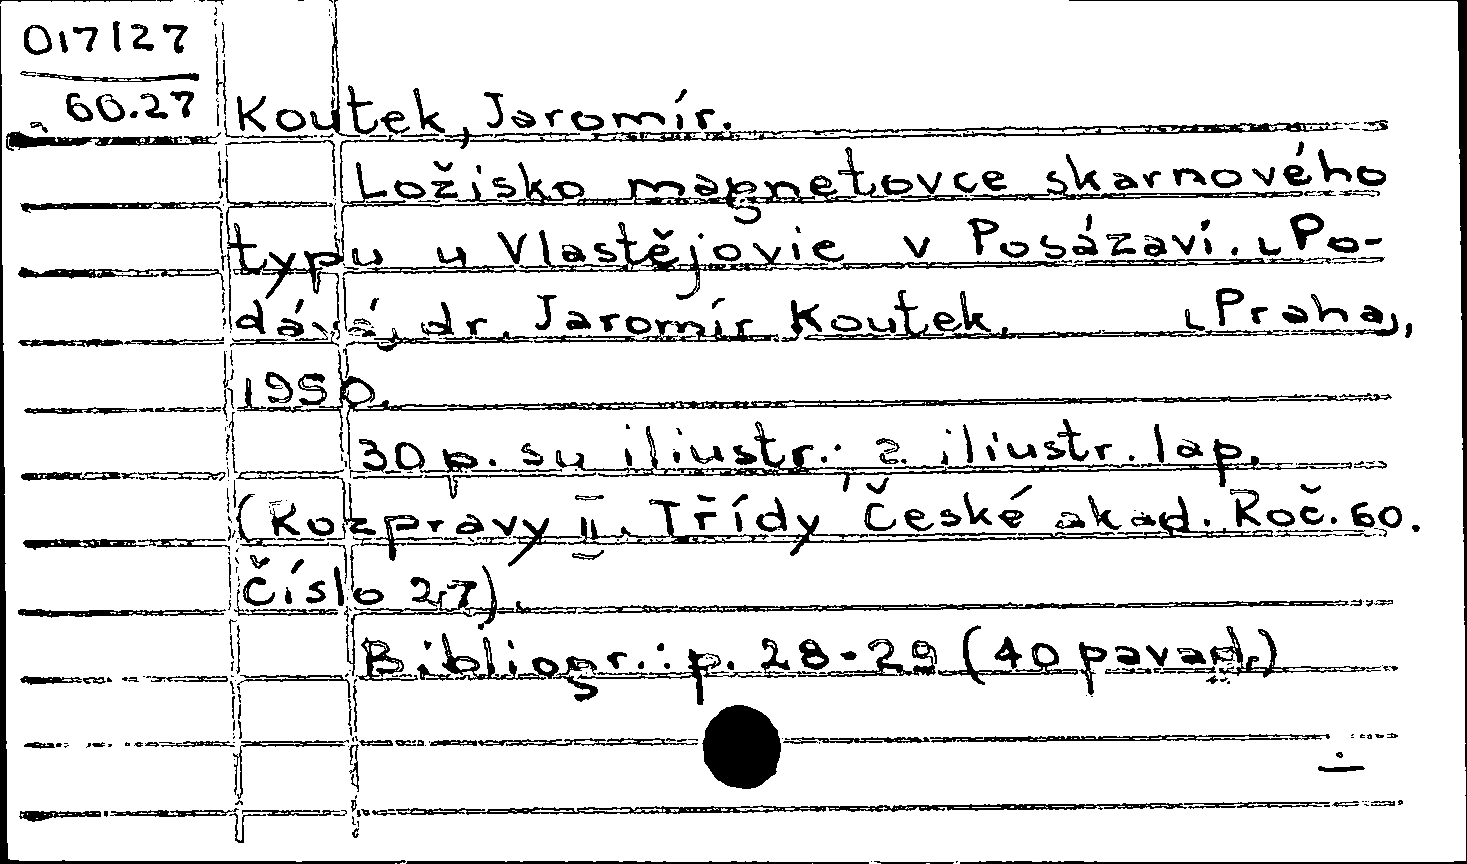 017127
60.27
Koutek, Jaromír.
Ložisko magnetovce skarnového
typu u Vlastějovic v Posázaví. [Po-
dává] dr. Jaromír Koutek. [Praha],
1950.
30 p. su iliustr.; 2 iliustr. lap.
(Rozpravy II. Třídy České akad. Roč. 60.
Číslo 27).
Bibliogr.: p. 28-29 (40 pavad.)